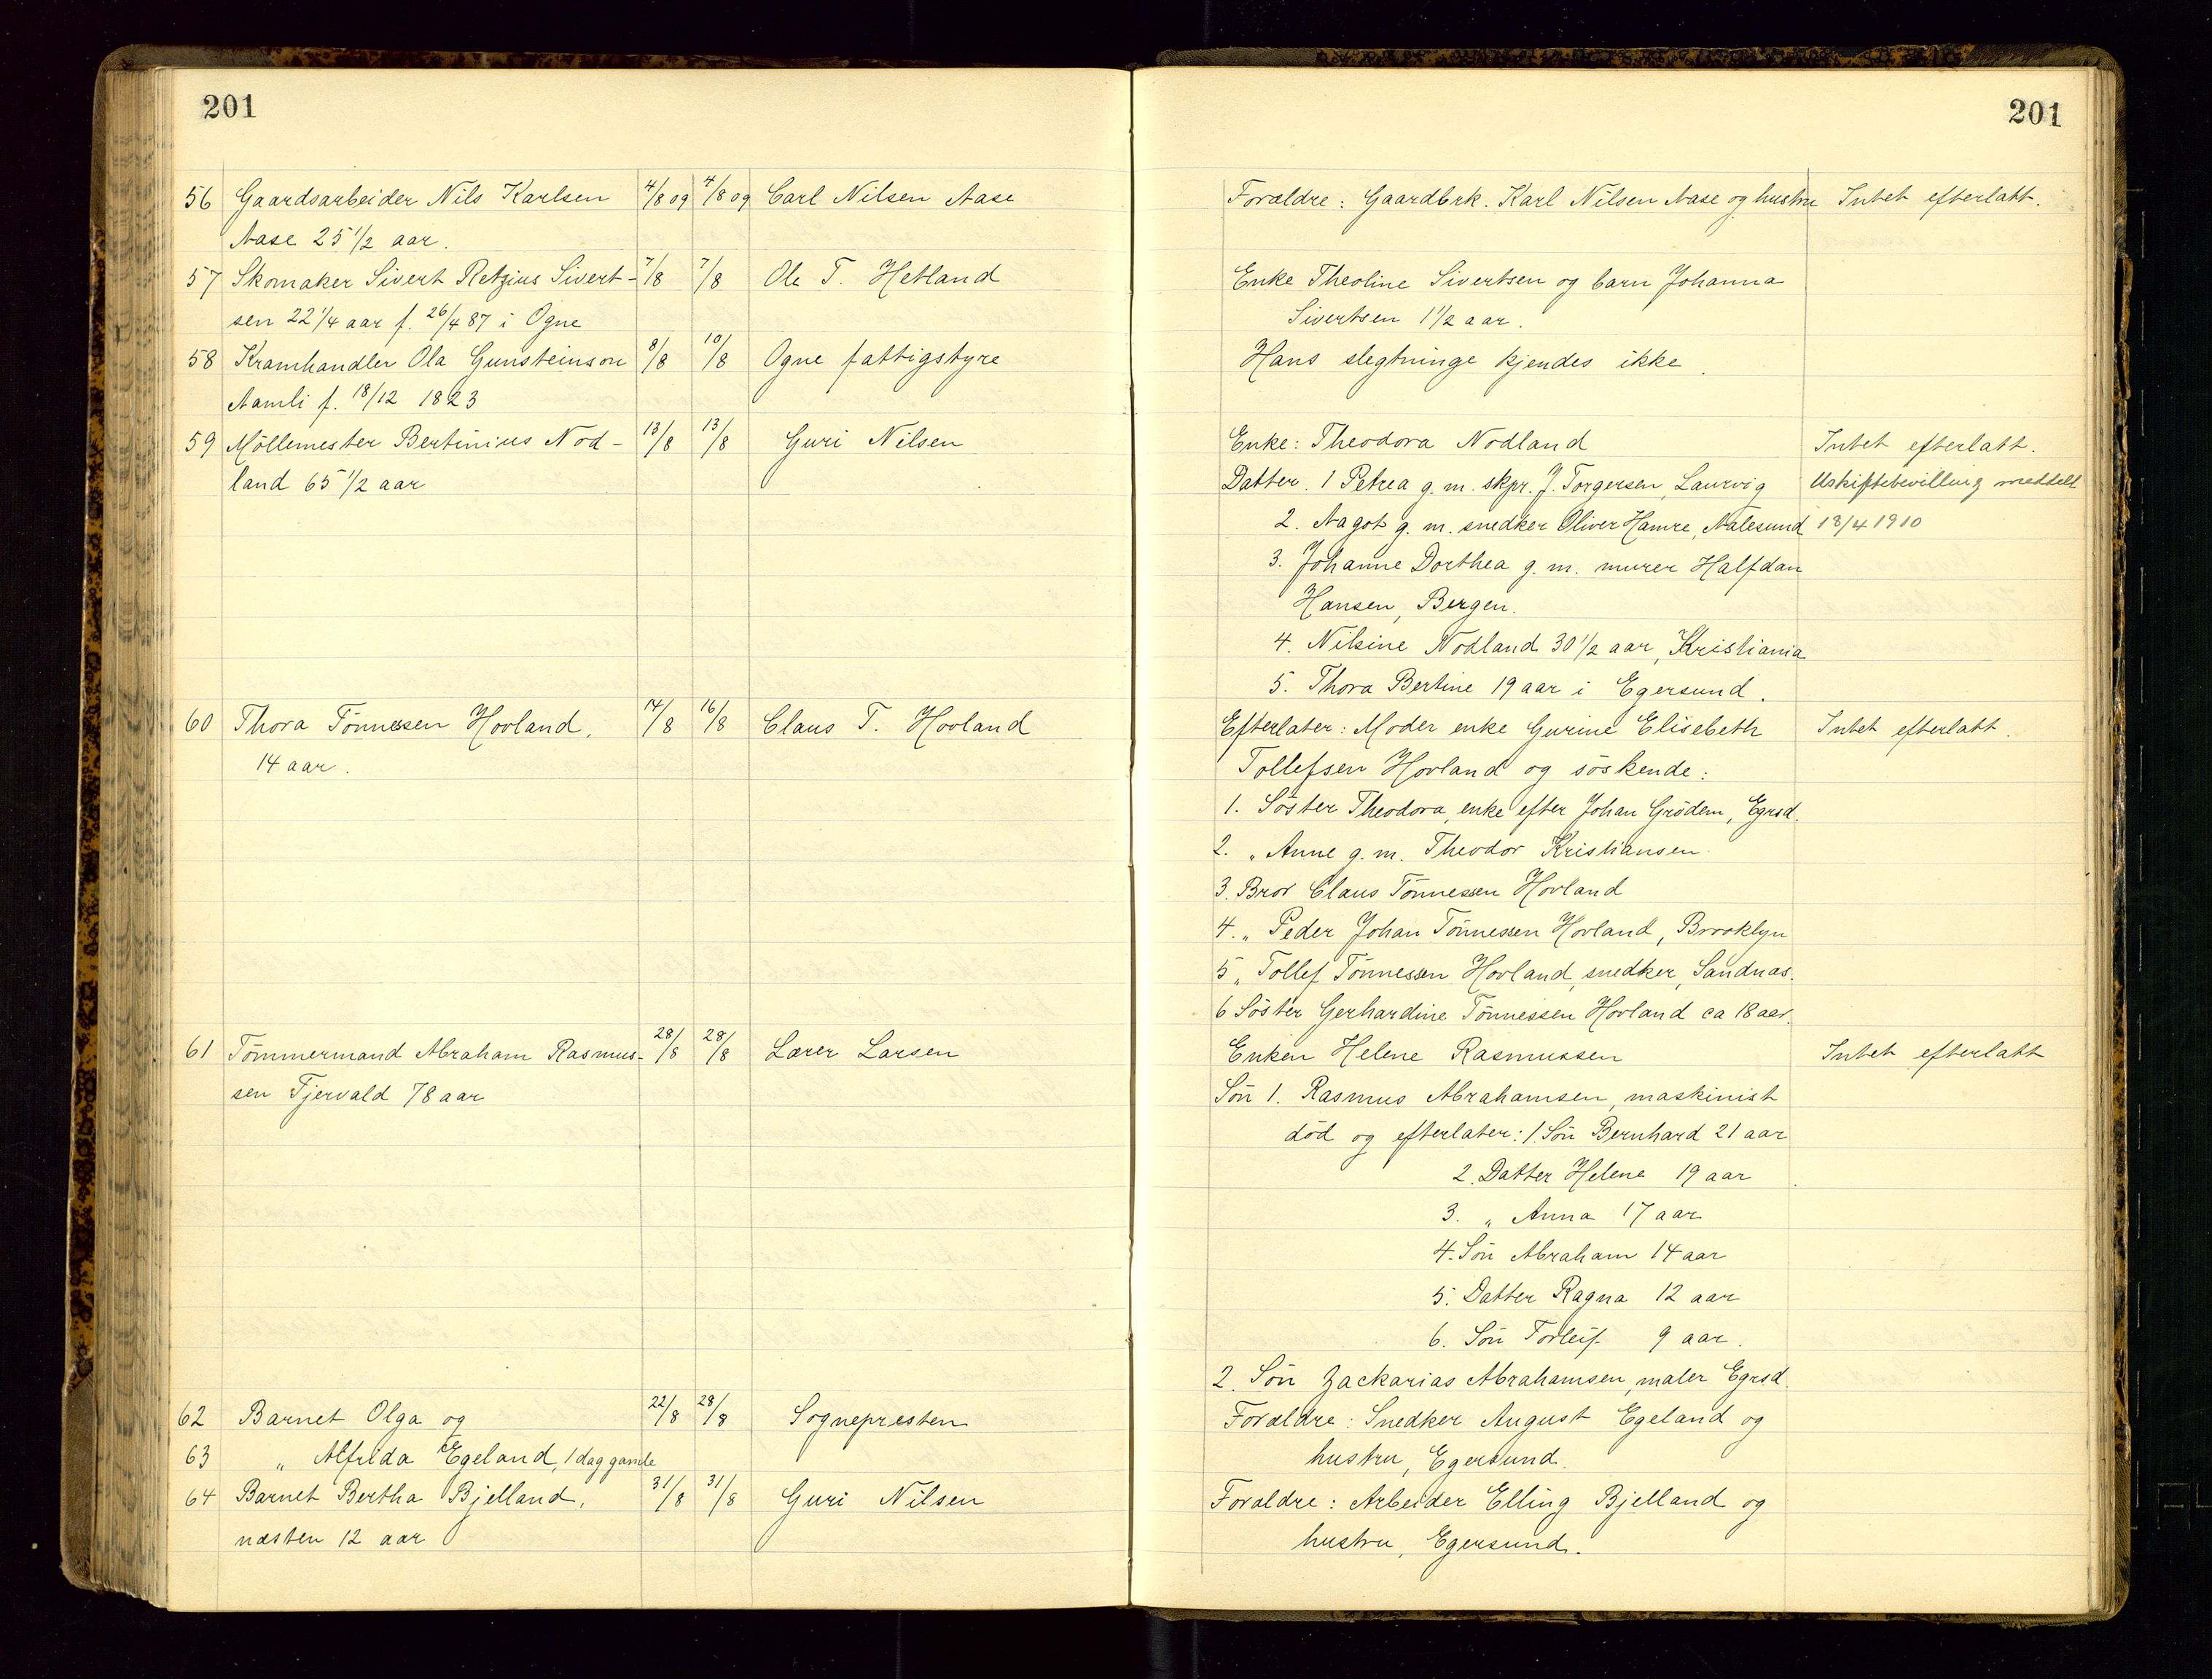 201
56 Gaardsarbeider Nils Karlsen 4/8 09 4/8 09 Carl Nilsen Aase
Aase 25 1/2 aar.
57 Skomaker Sivert Retzius Sivert- 7/8 7/8 Ole T. Hetland
sen 22 1/4 aar f. 26/4 87 i Ogne
58 Kramhandler Ola Gunsteinson 8/8 10/8 Ogne fattigstyre
Aamli f. 18/12 1823
59 Möllemester Bertinius Nod- 13/8 13/8 Guri Nilsen
land 65 1/2 aar
60 Thora Tönnessen Hovland, 14/8 16/8 Claus T. Hovland
14 aar.
61 Tömmermand Abraham Rasmus- 28/8 28/8 Lærer Larsen
sen Tjervald 78 aar
62 Barnet Olga og 22/8 28/8 Sognepresten
63 " Alfrida Egeland, 1 dag gamle
64 Barnet Bertha Bjelland, 31/8 31/8 Guri Nilsen
næsten 12 aar
201
Forældre: Gaardbrk. Karl Nilsen Aase og hustru Intet efterlatt.
Enke Theoline Sivertsen og barn Johanna
Sivertsen 1 1/2 aar.
Hans slegtninge kjendes ikke.
Enke: Theodora Nodland Intet efterlatt.
Datter. 1 Petrea g. m. skpr. J. Torgersen, Laurvig Uskiftebevilling meddelt
2. Aagot g. m. snedker Oliver Hamre, Aalesund 18/4 1910
3. Johanne Dorthea g. m. murer Halfdan
Hansen, Bergen.
4. Nilsine Nodland 30 1/2 aar, Kristiania
5. Thora Bertine 19 aar i Egersund.
Efterlater: Moder enke Gurine Elisebeth Intet efterlatt.
Tollefsen Hovland og söskende:
1. Söster Theodora, enke efter Johan Grödem, Egrsd.
2. " Anne g. m. Theodor Kristiansen.
3. Bror Claus Tönnessen Hovland
4. " Peder Johan Tönnessen Hovland, Brooklyn
5 " Tollef Tönnessen Hovland, snedker, Sandnæs.
6 Söster Gerhardine Tönnessen Hovland ca 18 aar.
Enken Helene Rasmussen Intet efterlatt
Sön 1. Rasmus Abrahamsen, maskinist
död og efterlater: 1 Sön Bernhard 21 aar
2. Datter Helene 19 aar
3. " Anna 17 aar
4. Sön Abraham 14 aar
5. Datter Ragna 12 aar
6. Sön Torleif 9 aar.
2. Sön Zackarias Abrahamsen, maler Egrsd.
Forældre: Snedker August Egeland og
hustru, Egersund.
Forældre: Arbeider Elling Bjelland og
hustru, Egersund.